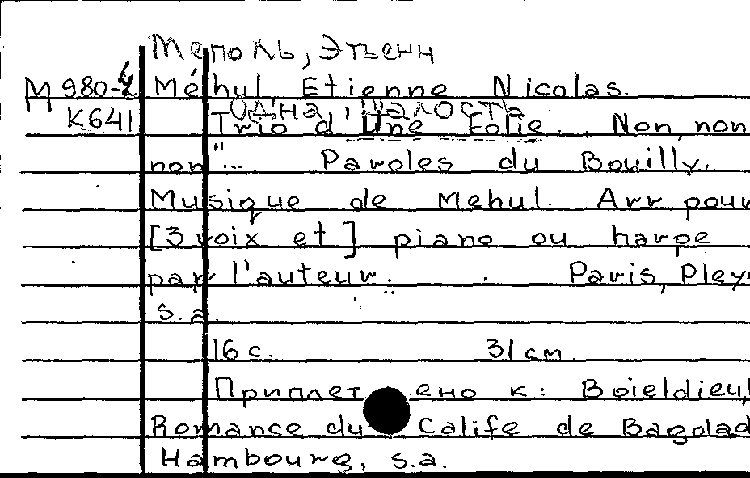 Меполь, Этьенн
M 980-4 Méhul Etienne Nicolas.
K641 Одна шалость
Trio d Une Folie. Non, non
non"... Paroles du Bouilly.
Musique de Mehul Arr pour
[3 voix et] piano ou harpe
par l'auteur. Paris, Pley
s.a
16 с. 31 см
Приплетено к: Boieldieu,
Romance du Calife de Bagdad
Hambourg, s.a.